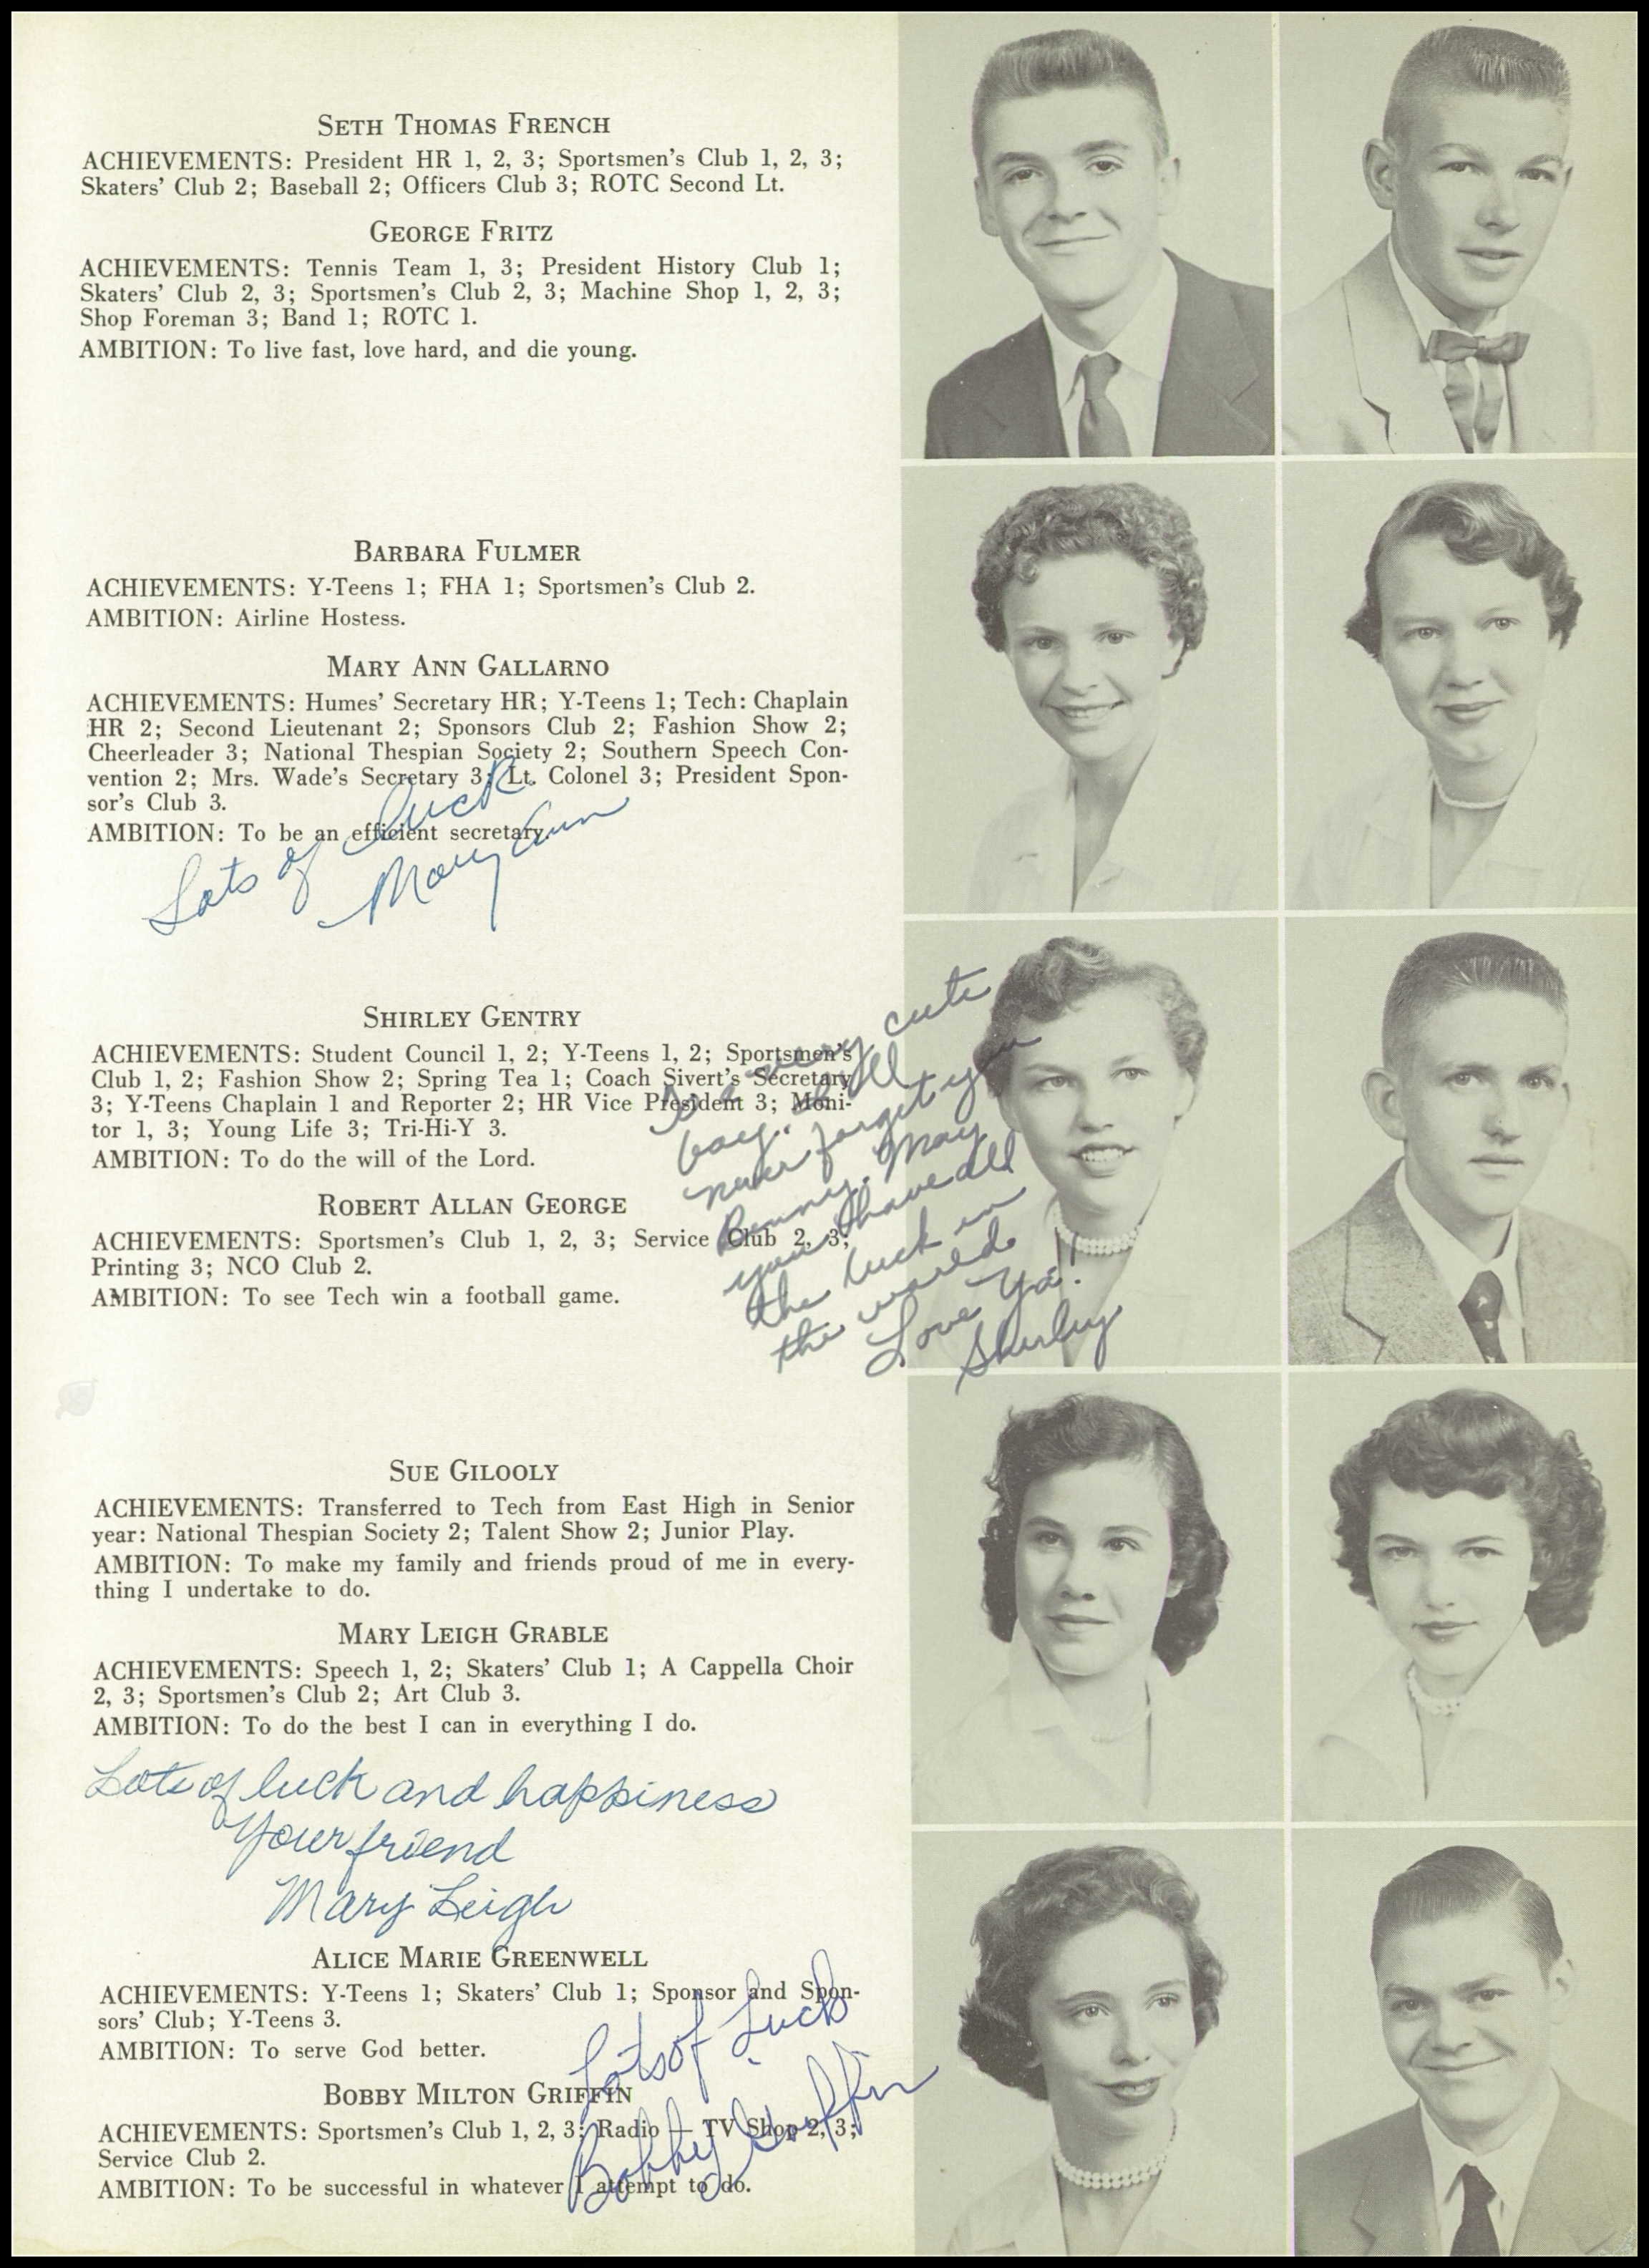 SETH THOMAS FRENCH
ACHIEVEMENTS: President HR 1, 2, 3; Sportsmen's Club 1, 2, 3;
Skaters' Club 2; Baseball 2; Officers Club 3; ROTC Second Lt.
GEORGE FRITZ
ACHIEVEMENTS: Tennis Team 1, 3; President History Club 1;
Skaters' Club 2, 3; Sportsmen's Club 2, 3; Machine Shop 1, 2, 3;
Shop Foreman 3; Band 1; ROTC 1.
AMBITION: To live fast, love hard, and die young.
BARBARA FULMER
ACHIEVEMENTS: Y-Teens 1; FHA 1; Sportsmen's Club 2.
AMBITION: Airline Hostess.
MARY ANN GALLARNO
ACHIEVEMENTS: Humes' Secretary HR; Y-Teens 1; Tech: Chaplain
HR 2; Second Lieutenant 2; Sponsors Club 2; Fashion Show 2;
Cheerleader 3; National Thespian Society 2; Southern Speech Con-
vention 2; Mrs. Wade's Secretary 3; Lt. Colonel 3; President Spon-
sor's Club 3.
AMBITION: To be an efficient secretary.
Lots of Luck
Mary Ann
SHIRLEY GENTRY
ACHIEVEMENTS: Student Council 1, 2; Y-Teens 1, 2; Sportsmen's
Club 1, 2; Fashion Show 2; Spring Tea 1; Coach Sivert's Secretary
3; Y-Teens Chaplain 1 and Reporter 2; HR Vice President 3; Moni-
tor 1, 3; Young Life 3; Tri-Hi-Y 3.
AMBITION: To do the will of the Lord.
To a very cute
boy. I'll
never forget you
Benny. May
you have all
the luck in
the world.
Love Ya!
Shirley
ROBERT ALLAN GEORGE
ACHIEVEMENTS: Sportsmen's Club 1, 2, 3; Service Club 2, 3;
Printing 3; NCO Club 2.
AMBITION: To see Tech win a football game.
SUE GILOOLY
ACHIEVEMENTS: Transferred to Tech from East High in Senior
year: National Thespian Society 2; Talent Show 2; Junior Play.
AMBITION: To make my family and friends proud of me in every-
thing I undertake to do.
MARY LEIGH GRABLE
ACHIEVEMENTS: Speech 1, 2; Skaters' Club 1; A Cappella Choir
2, 3; Sportsmen's Club 2; Art Club 3.
AMBITION: To do the best I can in everything I do.
Lots of luck and happiness
Your friend
Mary Leigh
ALICE MARIE GREENWELL
ACHIEVEMENTS: Y-Teens 1; Skaters' Club 1; Sponsor and Spon-
sors' Club; Y-Teens 3.
AMBITION: To serve God better.
Lots of Luck
Bobby Griffin
BOBBY MILTON GRIFFIN
ACHIEVEMENTS: Sportsmen's Club 1, 2, 3; Radio — TV Shop 2, 3;
Service Club 2.
AMBITION: To be successful in whatever I attempt to do.